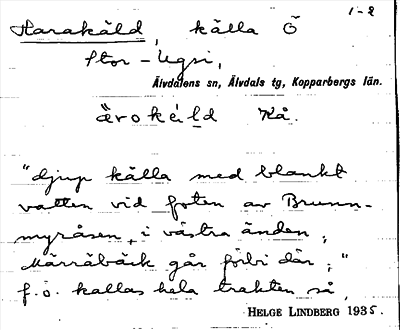 1-2
Harakäld, källa Ö
Stor-Ugsi,
Älvdalens sn, Älvdals tg, Kopparbergs län.
ärokéld Kå.
"djup källa med blankt
vatten vid foten av Brunn-
myråsen, i västra änden;
Märråbäck går förbi där;"
f.ö. kallas hela trakten så.
HELGE LINDBERG 1935.